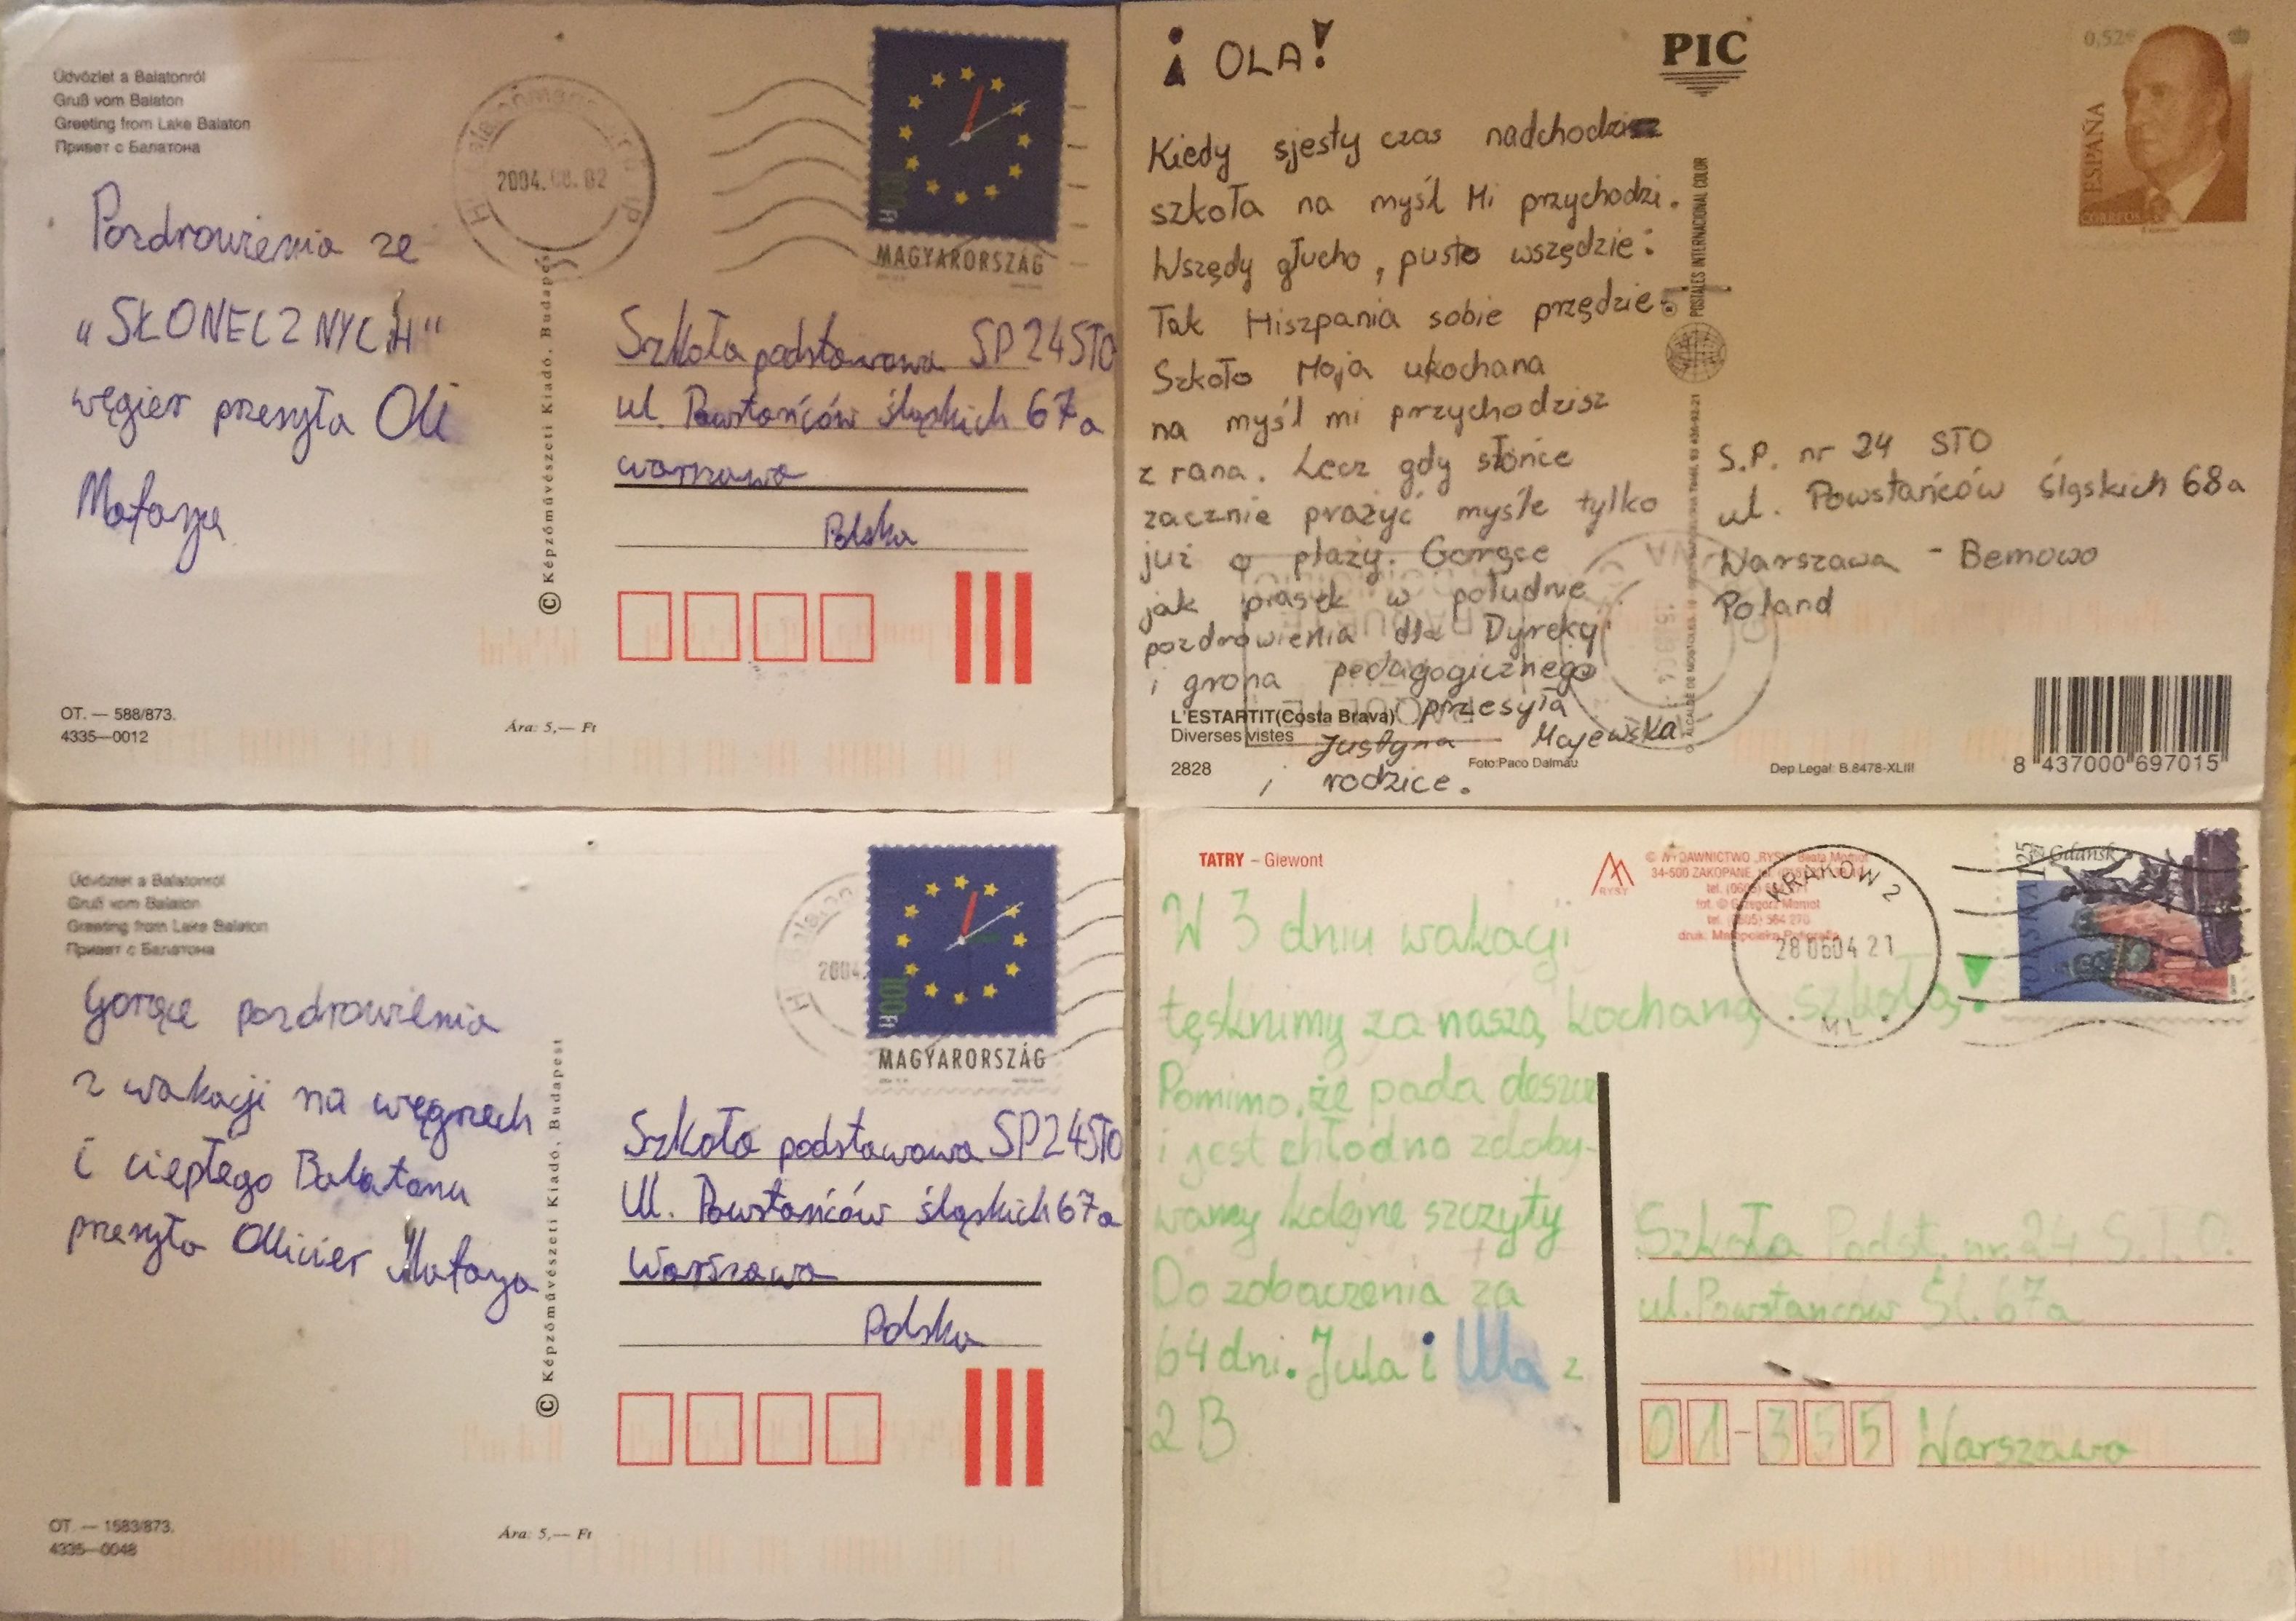 Üdvözlet a Balatonról
Gruß vom Balaton
Greeting from Lake Balaton
Привет с Балатона
2004.
100 Ft
MAGYARORSZÁG
Pozdrowienia ze
"SŁONECZNYCH"
węgier przesyła Oli
Mataya
© Képzőművészeti Kiadó, Budapest
Szkoła podstawowa SP24STO
ul. Powstańców śląskich 67a
warszawa
Polska
OT. — 588/873.
4335—0012
Ára: 5,— Ft
¡OLA!
PIC
0,52€
ESPAÑA
CORREOS
Kiedy sjesty czas nadchodzi
szkoła na myśl Mi przychodzi.
Wszędy głucho, pusto wszędzie:
Tak Hiszpania sobie przędzie.
Szkoło Moja ukochana
na myśl mi przychodzisz
z rana. Lecz gdy słońce
zacznie prażyć myśle tylko
już o plaży. Gorące
jak piasek w południe
pozdrowienia dla Dyrekcji
i grona pedagogicznego
przesyła
Justyna Majewska
i rodzice.
POSTALES INTERNACIONAL COLOR
S.P. nr 24 STO
ul. Powstańców śląskich 68a
Warszawa - Bemowo
Poland
L'ESTARTIT(Costa Brava)
Diverses vistes
2828
Foto:Paco Dalmau
Dep.Legal: B.8478-XLIII
8 437000 697015
Üdvözlet a Balatonról
Gruß vom Balaton
Greeting from Lake Balaton
Привет с Балатона
2004.
100 Ft
MAGYARORSZÁG
Gorące pozdrowienia
z wakacji na węgrzech
i ciepłego Balatonu
przesyła Olivier Mataya
© Képzőművészeti Kiadó, Budapest
Szkoła podstawowa SP24STO
Ul. Powstańców śląskich 67a
Warszawa
Polska
OT. — 1583/873.
4335—0048
Ára: 5,— Ft
TATRY – Giewont
RYSY
© WYDAWNICTWO „RYSY" Beata Momot
34-500 ZAKOPANE
fot. © Grzegorz Momot
KRAKÓW 2
28 06 04 21
ML
Gdańsk
POLSKA 1,25
W 3 dniu wakacji
tęsknimy za naszą kochaną szkołą!
Pomimo, że pada deszcz
i jest chłodno zdoby-
wamy kolejne szczyty
Do zobaczenia za
64 dni. Jula i Ula z
2B
Szkoła Podst. nr. 24 S.T.O.
ul. Powstańców Śl. 67a
01-355 Warszawa